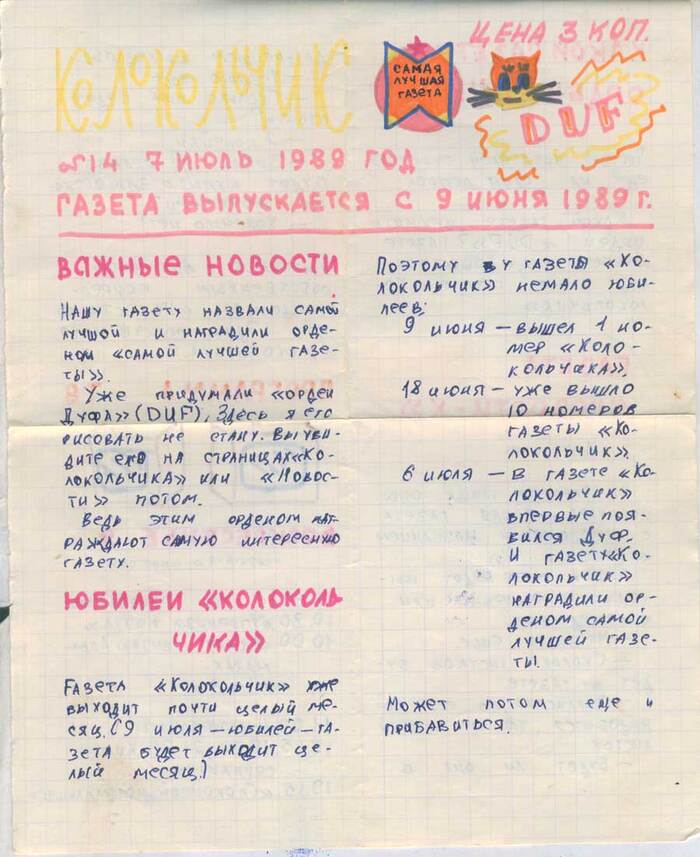 ЦЕНА 3 КОП.
КОЛОКОЛЬЧИК
САМАЯ
ЛУЧШАЯ
ГАЗЕТА
DUF
№14 7 ИЮЛЬ 1989 ГОД
ГАЗЕТА ВЫПУСКАЕТСЯ С 9 ИЮНЯ 1989 Г.
ВАЖНЫЕ НОВОСТИ
НАШУ ГАЗЕТУ НАЗВАЛИ САМОЙ
ЛУЧШОЙ И НАГРАДИЛИ ОРДЕ-
НОМ «САМОЙ ЛУЧШЕЙ ГАЗЕ-
ТЫ».
УЖЕ ПРИДУМАЛИ «ОРДЕН
ДУФА» (DUF), ЗДЕСЬ Я ЕГО
РИСОВАТЬ НЕ СТАНУ. ВЫ УВИ-
ДИТЕ ЕГО НА СТРАНИЦАХ «КО-
ЛОКОЛЬЧИКА» ИЛИ «НОВОС-
ТИ» ПОТОМ.
ВЕДЬ ЭТИМ ОРДЕНОМ НАГ-
РАЖДАЮТ САМУЮ ИНТЕРЕСНУЮ
ГАЗЕТУ.
ЮБИЛЕИ «КОЛОКОЛЬ
ЧИКА»
ГАЗЕТА «КОЛОКОЛЬЧИК» УЖЕ
ВЫХОДИТ ПОЧТИ ЦЕЛЫЙ МЕ-
СЯЦ. (9 ИЮЛЯ — ЮБИЛЕЙ — ГА-
ЗЕТА БУДЕТ ВЫХОДИТ ЦЕ-
ЛЫЙ МЕСЯЦ.)
ПОЭТОМУ У ГАЗЕТЫ «КО-
ЛОКОЛЬЧИК» НЕМАЛО ЮБИ-
ЛЕЕВ:
9 ИЮНЯ — ВЫШЕЛ 1 НО-
МЕР «КОЛО-
КОЛЬЧИКА».
18 ИЮНЯ — УЖЕ ВЫШЛО
10 НОМЕРОВ
ГАЗЕТЫ «КО-
ЛОКОЛЬЧИК».
6 ИЮЛЯ — В ГАЗЕТЕ «КО-
ЛОКОЛЬЧИК»
ВПЕРВЫЕ ПОЯ-
ВИЛСЯ ДУФ.
И ГАЗЕТУ «КО-
ЛОКОЛЬЧИК»
НАГРАДИЛИ ОР-
ДЕНОМ САМОЙ
ЛУЧШЕЙ ГАЗЕ-
ТЫ.
МОЖЕТ ПОТОМ ЕЩЕ И
ПРИБАВИТЬСЯ.